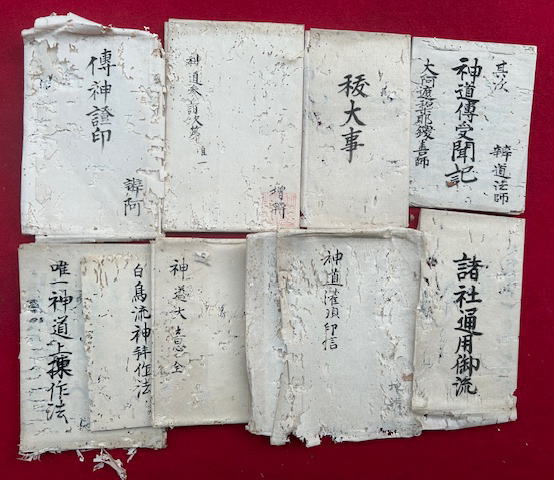 其次
辨道法師
神道傳受聞記
大阿遮梨耶鑁善師
大事
神道参詣次第 唯一
傳神證印
辨阿
諸社通用御流
神道灌頂印信
神道大意 全
白鳥流神拜作法
唯一神道上棟作法